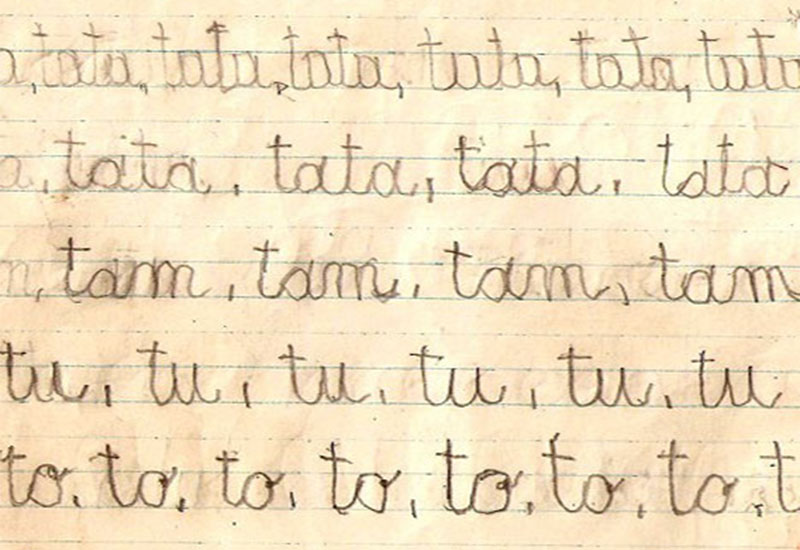 a, tata, tata, tata, tata, tata, tata
a, tata, tata, tata, tata
m, tam, tam, tam, tam
tu, tu, tu, tu, tu, tu
to, to, to, to, to, to, to, t